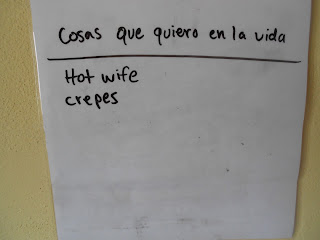 Cosas que quiero en la vida
Hot wife
crepes